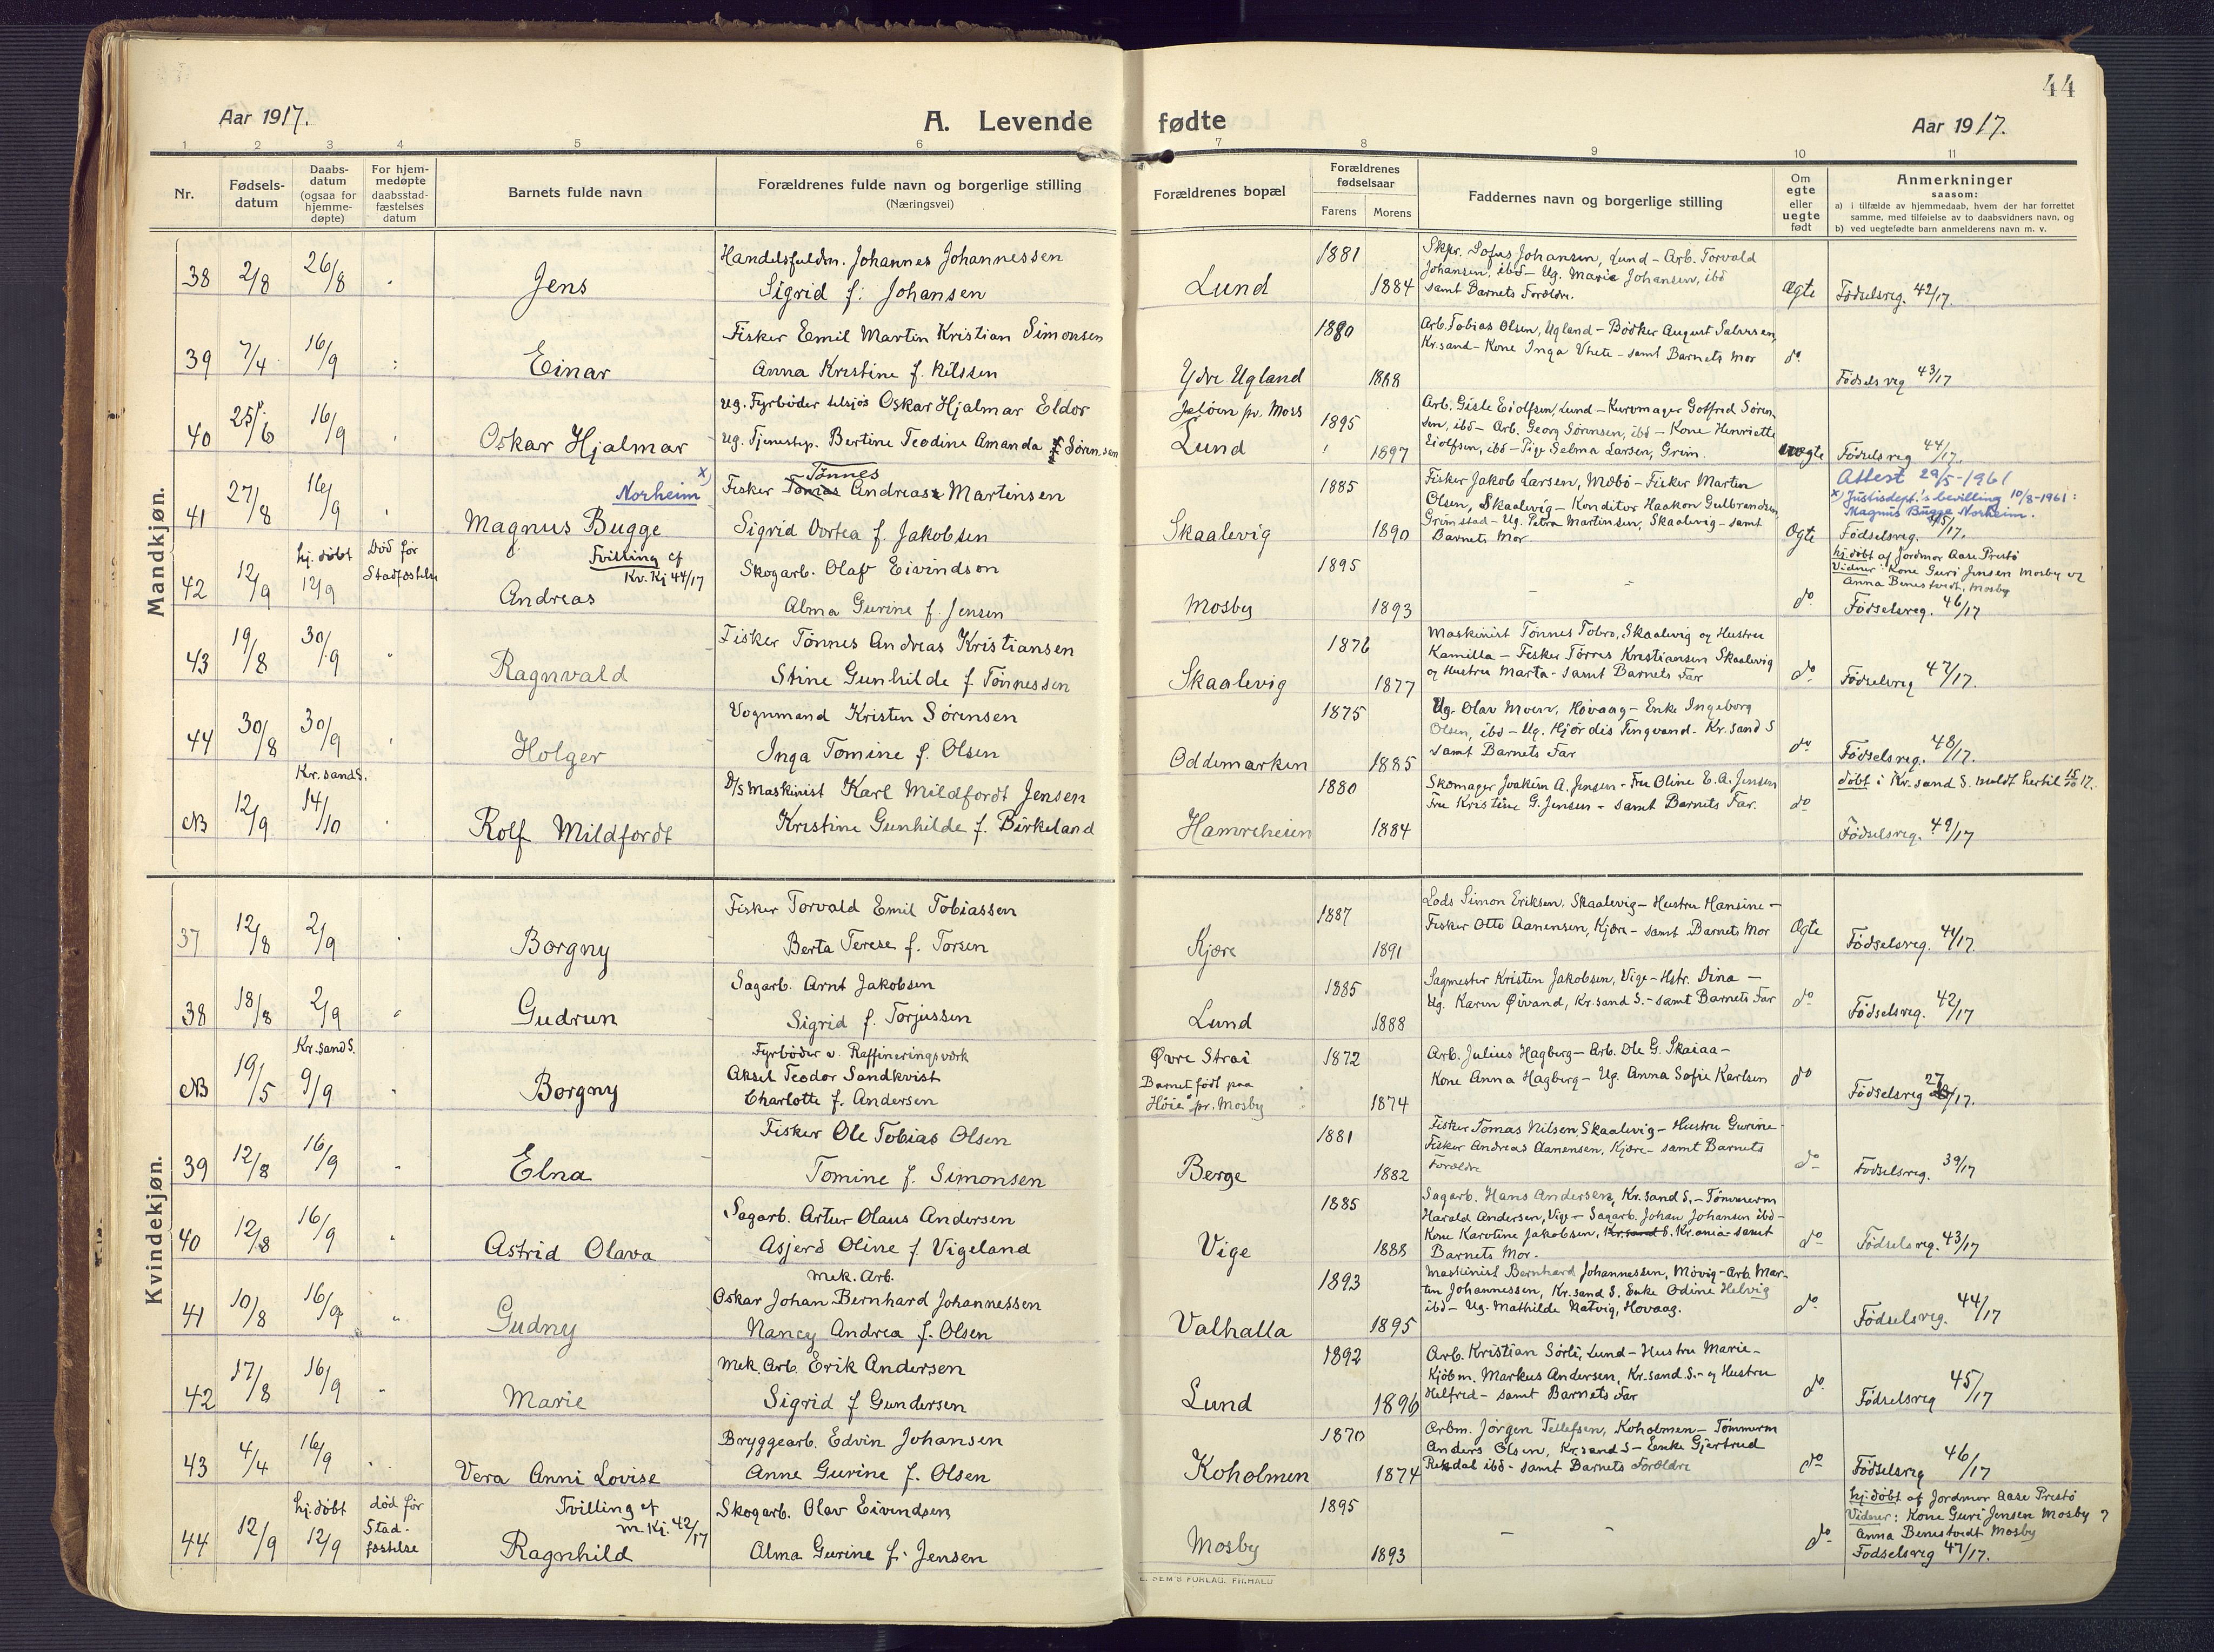 44
Aar 1917.
A. Levende fødte
Aar 1917.
1 2 3 4 5 6 7 8 9 10 11
Nr.
Fødsels-
datum
Daabs-
datum
(ogsaa for
hjemme-
døpte)
For hjem-
medøpte
daabsstad-
fæstelses
datum
Barnets fulde navn
Forældrenes fulde navn og borgerlige stilling
(Næringsvei)
Forældrenes bopæl
Forældrenes
fødselsaar
Farens Morens
Faddernes navn og borgerlige stilling
Om
egte
eller
uegte
født
Anmerkninger
saasom:
a) i tilfælde av hjemmedaab, hvem der har forrettet
samme, med tilføielse av to daabsvidners navn, og
b) ved uegtefødte barn anmelderens navn m. v.
Mandkjøn.
38 2/8 26/8 Jens
Handelsfuldm. Johannes Johannessen
Sigrid f. Johansen
Lund 1881 1884
Skpr. Sofus Johansen, Lund - Arb. Torvald
Johansen, ibd - Ug. Marie Johansen, ibd
samt Barnets Forældre.
Ægte Fødselsreg. 42/17.
39 7/4 16/9 Einar
Fisker Emil Martin Kristian Simonsen
Anna Kristine f. Nilssen
Ydre Ugland 1880 1888
Arb. Tobias Olsen, Ugland - Bødker August Salvesen,
Kr.sand - Kone Inga Vhete - samt Barnets Mor
do. Fødselsreg 43/17
40 25/6 16/9 Oskar Hjalmar
Ug. Fyrbøder tilsjøs Oskar Hjalmar Eldor
Ug. Tjenestep. Bertine Teodine Amanda Sørensen
Jeløen pr. Moss
Lund 1895 1897
Arb. Gisle Eiolfsen, Lund - Kurvmager Gotfred Søren-
sen, ibd - Arb. Georg Sørensen, ibd - Kone Henriette
Eiolfsen, ibd - Pige Selma Larsen, Grim.
uægte Fødselsreg 44/17.
41 27/8 16/9 Norheim x)
Magnus Bugge
Tønnes
Fisker Tomas Andreas Martinsen
Sigrid Dortea f. Jakobsen
Skaalevig 1885 1890
Fisker Jakob Larsen, Mæbø - Fisker Martin
Olsen, Skaalevig - Konditor Haakon Gulbrandsen,
Grimstad - Ug. Petra Martinsen, Skaalevig - samt
Barnets Mor.
Ægte
Attest 29/5-1961
x) Justisdept.'s bevilling 10/8-1961:
Magnus Bugge Norheim.
Fødselsreg. 45/17.
42 12/9 hj. døbt 12/9 Død før Stadfæstelse
Tvilling cf
Kv. Kj 44/17
Andreas
Skogarb. Olaf Eivindson
Alma Gurine f. Jensen
Mosby 1895 1893
do.
hj. døbt af Jordmor Aase Prestø
Vidner: Kone Guri Jensen Mosby og
Anna Benestvedt, Mosby
Fødselsreg. 46/17
43 19/8 30/9 Ragnvald
Fisker Tønnes Andreas Kristiansen
Stine Gunhilde f. Tønnessen
Skaalevig 1876 1877
Maskinist Tønnes Tobro, Skaalevig og Hustru
Kamilla - Fisker Tørres Kristiansen Skaalevig
og Hustru Marta - samt Barnets Far
do. Fødselsreg 47/17.
44 30/8 30/9 Holger
Vognmand Kristen Sørensen
Inga Tomine f. Olsen
Oddemarken 1875 1885
Ug. Olav Moen, Høvaag - Enke Ingeborg
Olsen, ibd - Ug. Hjørdis Tingvand. Kr.sand S
samt Barnets Far
do. Fødselsreg. 48/17.
NB 12/9 Kr.sand S. 14/10 Rolf Mildfordt
D/S Maskinist Karl Mildfordt Jensen
Kristine Gunhilde f. Birkeland
Hamreheien 1880 1884
Skomager Joakim A. Jensen - Fru Oline E. A. Jensen
Fru Kristine G. Jensen - samt Barnets Far.
do.
døbt i Kr.sand S. meldt hertil 15/10 17.
Fødselsreg. 49/17
Kvindekjøn.
37 12/8 2/9 Borgny
Fisker Torvald Emil Tobiassen
Berta Terese f. Torsen
Kjære 1887 1891
Lods Simon Eriksen, Skaalevig - Hustru Hansine -
Fisker Otto Aanensen, Kjære - samt Barnets Mor
Ægte Fødselsreg. 41/17.
38 18/8 2/9 Gudrun
Sagarb. Arnt Jakobsen
Sigrid f. Torjussen
Lund 1885 1888
Sagmester Kristen Jakobsen, Vige - Hstr. Dina -
Ug. Karen Øivand, Kr.sand S. - samt Barnets Far
do. Fødselsreg. 42/17
NB 19/5 Kr.sand S. 9/9 Borgny
Fyrbøder v. Raffineringsværk
Aksel Teodor Sandkvist
Charlotte f. Andersen
Øvre Strai
Barnet født paa
Høie pr. Mosby
1872 1874
Arb. Julius Hagberg - Arb. Ole G. Skaiaa -
Kone Anna Hagberg - Ug. Anna Sofie Karlsen
do. Fødselsreg 27/17.
39 12/8 16/9 Elna
Fisker Ole Tobias Olsen
Tomine f. Simonsen
Berge 1881 1882
Fisker Tomas Nilsen Skaalevig - Hustru Gurine -
Fisker Andreas Aanensen, Kjære - samt Barnets
Forældre
do. Fødselsreg. 39/17
40 12/8 16/9 Astrid Olava
Sagarb. Artur Olaus Andersen
Asjerd Oline f. Vigeland
Vige 1885 1888
Sagarb. Hans Andersen, Kr.sand S. - Tømmerm
Harald Andersen, Vige - Sagarb. Johan Johansen ibd -
Kone Karoline Jakobsen, Kr.sand S. Kr.ania - samt
Barnets Mor.
do. Fødselsreg. 43/17
41 10/8 16/9 Gudny
Mek. Arb.
Oskar Johan Bernhard Johannessen
Nancy Andrea f. Olsen
Valhalla 1893 1895
Maskinist Bernhard Johannessen, Møvig - Arb. Mar-
tin Johannessen, Kr.sand S. Enke Odine Helvig
ibd - Ug. Mathilde Natvig, Hovaag.
do. Fødselsreg. 44/17
42 17/8 16/9 Marie
Mek. Arb. Erik Andersen
Sigrid f Gundersen
Lund 1892 1896
Arb. Kristian Sørli, Lund - Hustru Marie -
Kjøbm. Markus Andersen, Kr.sand S. - og Hustru
Helfred - samt Barnets Far
do. Fødselsreg 45/17
43 4/4 16/9 Vera Anni Lovise
Bryggearb. Edvin Johansen
Anne Gurine f. Olsen
Koholmen 1870 1874
Arbm. Jørgen Tellefsen, Koholmen - Tømmerm
Anders Olsen, Kr.sand S - Enke Gjertrud
ibd - samt Barnets Forældre
do. Fødselsreg 46/17
44 12/9 hj. døbt 12/9 død før Stad-
fæstelse
Tvilling cf
m. Kj. 42/17
Ragnhild
Skogarb. Olav Eivindsen
Alma Gurine f. Jensen
Mosby 1895 1893
do.
hj. døbt af Jordmor Aase Prestø
Vidner: Kone Guri Jensen Mosby og
Anna Benestvedt Mosby
Fødselsreg 47/17.
E. SEM'S FORLAG. FR.HALD